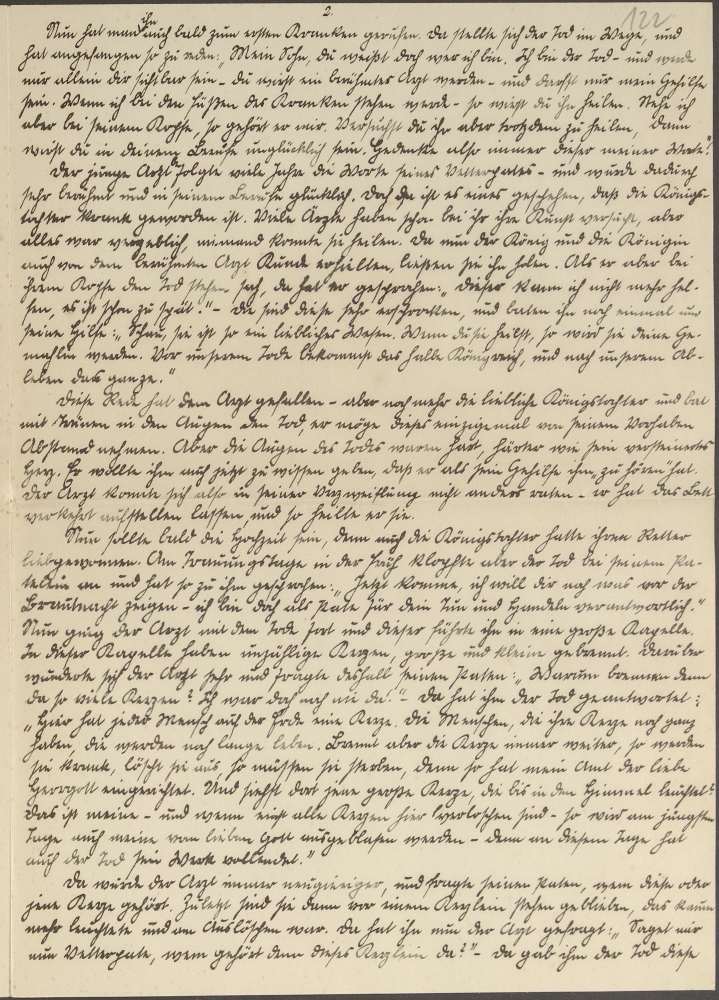 2.
122
Nun hat man ihn auch bald zum ersten Kranken gerufen. Da stellte sich der Tod im Wege, und
hat angefangen so zu reden: „Mein Sohn, du weißt doch wer ich bin. Ich bin der Tod - und werde
nur allein dir sichtbar sein - du wirst ein berühmter Arzt werden - und darfst nur mein Gehilfe
sein. Wenn ich bei den Füßen des Kranken stehen werde - so wirst du ihn heilen. Stehe ich
aber bei seinem Kopfe, so gehört er mir. Versuchst du ihn aber trotzdem zu heilen, dann
wirst du in deinem Berufe unglücklich sein. Gedenke also immer dieser meiner Worte."
Der junge Arzt folgte viele Jahre die Worte seines Vetterpates - und wurde dadurch
sehr berühmt und in seinem Berufe glücklich. Doch da ist es eines geschehen, daß die Königs-
tochter krank geworden ist. Viele Ärzte haben schon bei ihr ihre Kunst versucht, aber
alles war vergeblich, niemand konnte sie heilen. Da nun der König und die Königin
auch von dem berühmten Arzt Kunde erhielten, ließen sie ihn holen. Als er aber bei
ihrem Kopfe den Tod stehen sah, da hat er gesprochen: „Dieser kann ich nicht mehr hel-
fen, es ist schon zu spät." - Da sind diese sehr erschrocken, und baten ihn noch einmal um
seine Hilfe: „Schau, sie ist so ein liebliches Wesen. Wenn du sie heilst, so wird sie deine Ge-
mahlin werden. Vor unserem Tode bekommst das halbe Königreich, und nach unserem Ab-
leben das ganze."
Diese Rede hat dem Arzt gefallen - aber noch mehr die liebliche Königstochter und bat
mit Tränen in den Augen den Tod, er möge dieses einzigemal von seinem Vorhaben
Abstand nehmen. Aber die Augen des Todes waren hart, härter wie sein versteinertes
Herz. Er wollte ihm auch jetzt zu wissen geben, daß er als sein Gehilfe ihm zu hören hat.
Der Arzt konnte sich also in seiner Verzweiflung nicht anders raten - er hat das Bett
verkehrt aufstellen lassen, und so heilte er sie.
Nun sollte bald die Hochzeit sein, denn auch die Königstochter hatte ihren Retter
liebgewonnen. Am Trauungstage in der Früh klopfte aber der Tod bei seinem Pa-
tekin an und hat so zu ihm gesprochen: „Jetzt komme, ich will dir noch was vor der
Brautnacht zeigen - ich bin doch als Pate für dein Tun und Handeln verantwortlich."
Nun ging der Arzt mit dem Tode fort und dieser führte ihn in eine große Kapelle.
In dieser Kapelle haben unzählige Kerzen, große und kleine gebrannt. Darüber
wunderte sich der Arzt sehr und fragte deshalb seinen Paten: „Warum brennen denn
da so viele Kerzen? Ich war doch noch nie da." - Da hat ihm der Tod geantwortet:
„Hier hat jeder Mensch auf der Erde eine Kerze. Die Menschen, die ihre Kerze noch ganz
haben, die werden noch lange leben. Brennt aber die Kerze immer weiter, so werden
sie krank, löscht sie aus, so müssen sie sterben, denn so hat mein Amt der liebe
Herrgott eingerichtet. Und siehst dort jene große Kerze, die bis in den Himmel leuchtet?
Das ist meine - und wenn einst alle Kerzen hier verloschen sind - so wird am jüngsten
Tage auch meine vom lieben Gott ausgeblasen werden - denn an diesem Tage hat
auch der Tod sein Werk vollendet."
Da wurde der Arzt immer neugieriger, und fragte seinen Paten, wem diese oder
jene Kerze gehört. Zuletzt sind sie dann vor einem Kerzlein stehen geblieben, das kaum
mehr leuchtete und am Auslöschen war. Da hat ihn nun der Arzt gefragt: „Saget mir
nun Vetterpate, wem gehört denn dieses Kerzlein da?" - Da gab ihm der Tod diese